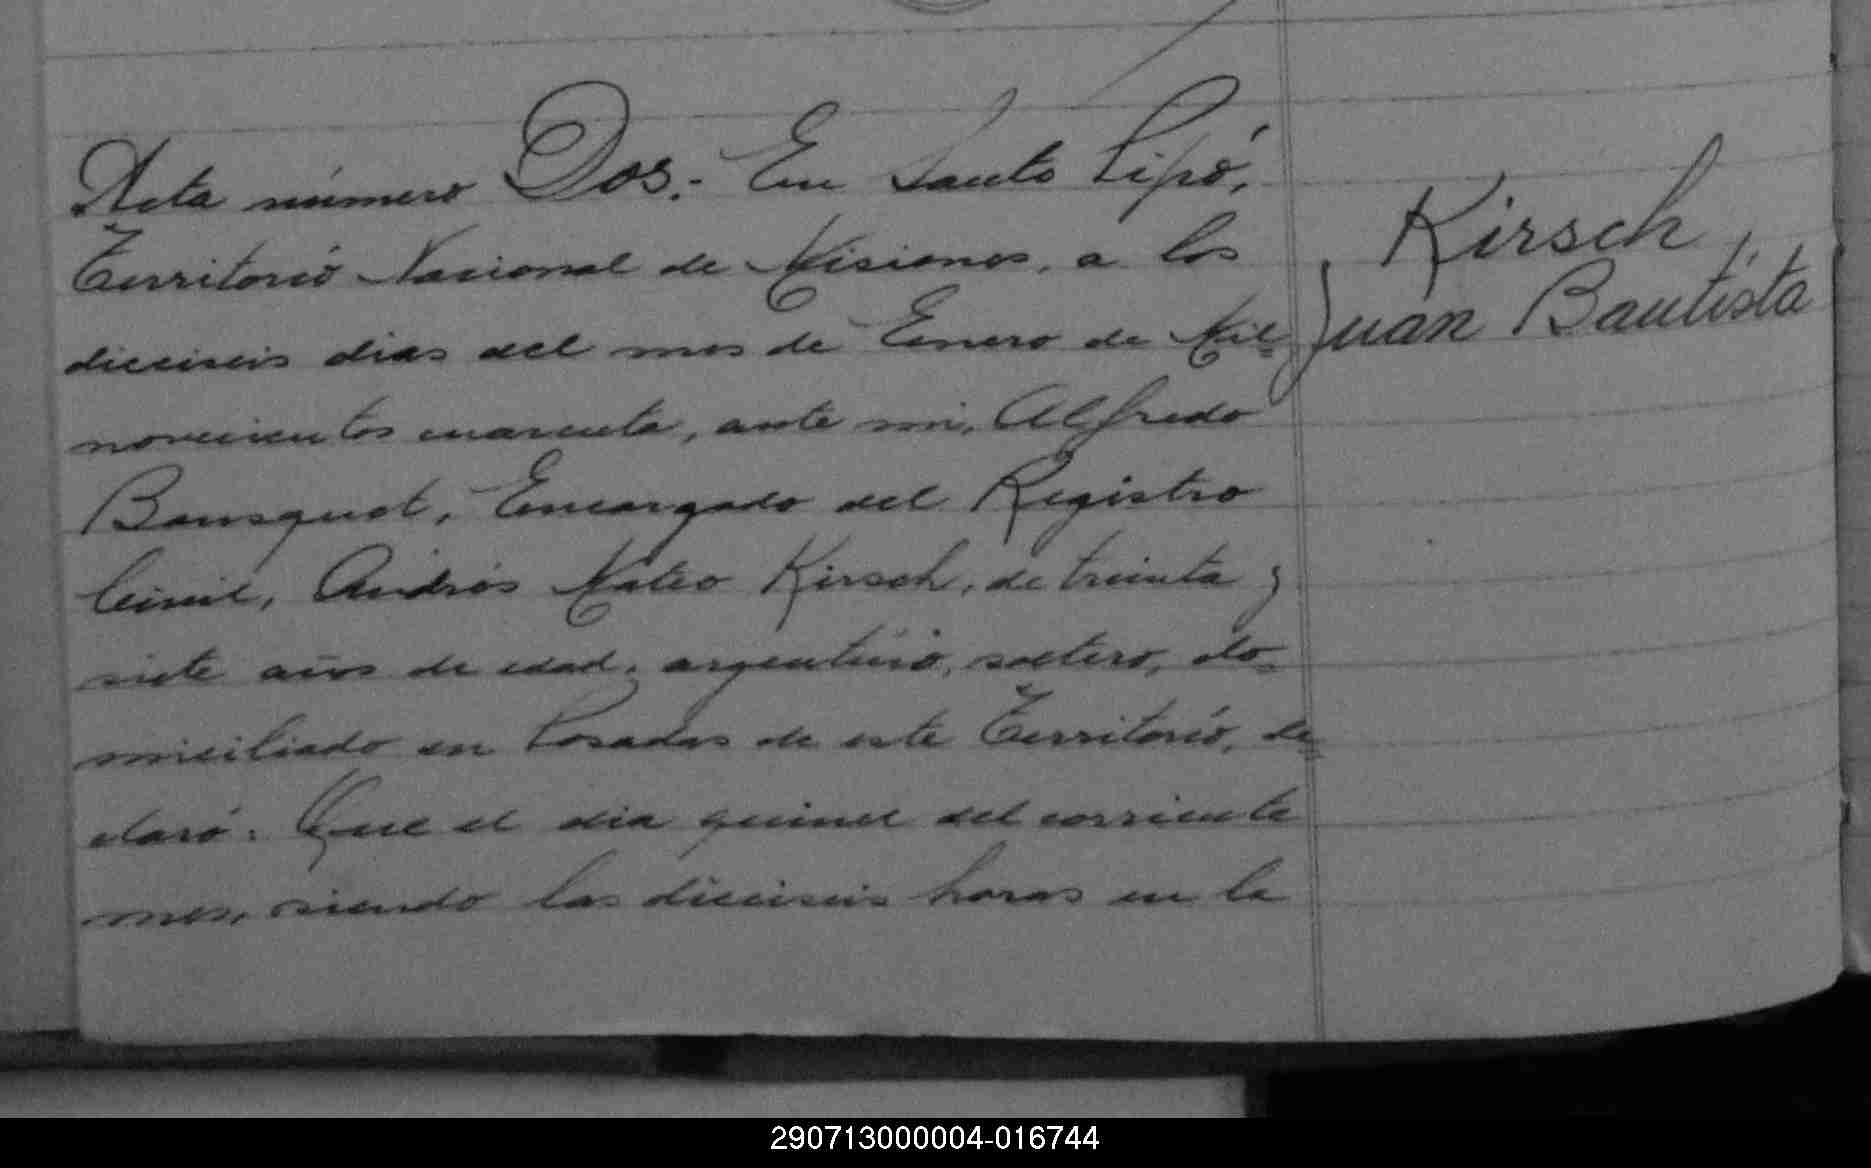 Acta número Dos.- En Santo Pipó,
Territorio Nacional de Misiones, a los
dieciseis dias del mes de Enero de Mil
novecientos cuarenta, ante mi, Alfredo
Bousquet, Encargado del Registro
Civil, Andrés Mateo Kirsch, de treinta y
siete años de edad, argentino, soltero, do-
miciliado en Posadas de este Territorio, de-
claró: Que el dia quince del corriente
mes, siendo las dieciseis horas en la
Kirsch,
Juan Bautista
290713000004-016744